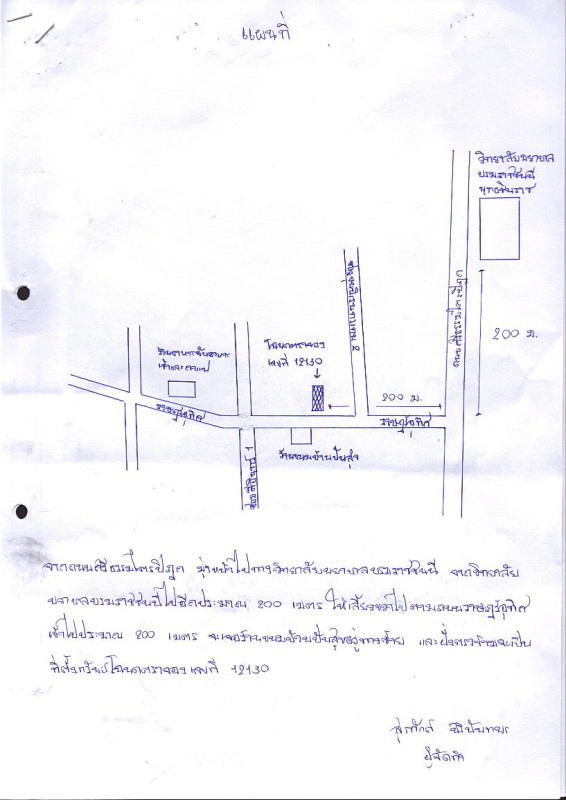 แผนที่
วิทยาลัยพยาบาล
บรมราชชนนี
พุทธชินราช
ถนนศรีธรรมไตรปิฎก
200 ม.
โฉนดตราจอง
เลขที่ 12130
200 ม.
ราษฎร์อุทิศ
ราษฎร์อุทิศ
ร้านขนมบ้านปั้นสุข
จากถนนศรีธรรมไตรปิฎก มุ่งหน้าไปทางวิทยาลัยพยาบาลบรมราชชนนี จากวิทยาลัย
พยาบาลบรมราชชนนีไปอีกประมาณ 200 เมตร ให้เลี้ยวขวาไปตามถนนราษฎร์อุทิศ
เข้าไปประมาณ 200 เมตร จะเจอร้านขนมบ้านปั้นสุขอยู่ทางซ้าย และฝั่งตรงข้ามจะเป็น
ที่ตั้งทรัพย์โฉนดตราจอง เลขที่ 12130
ผู้จัดทำ